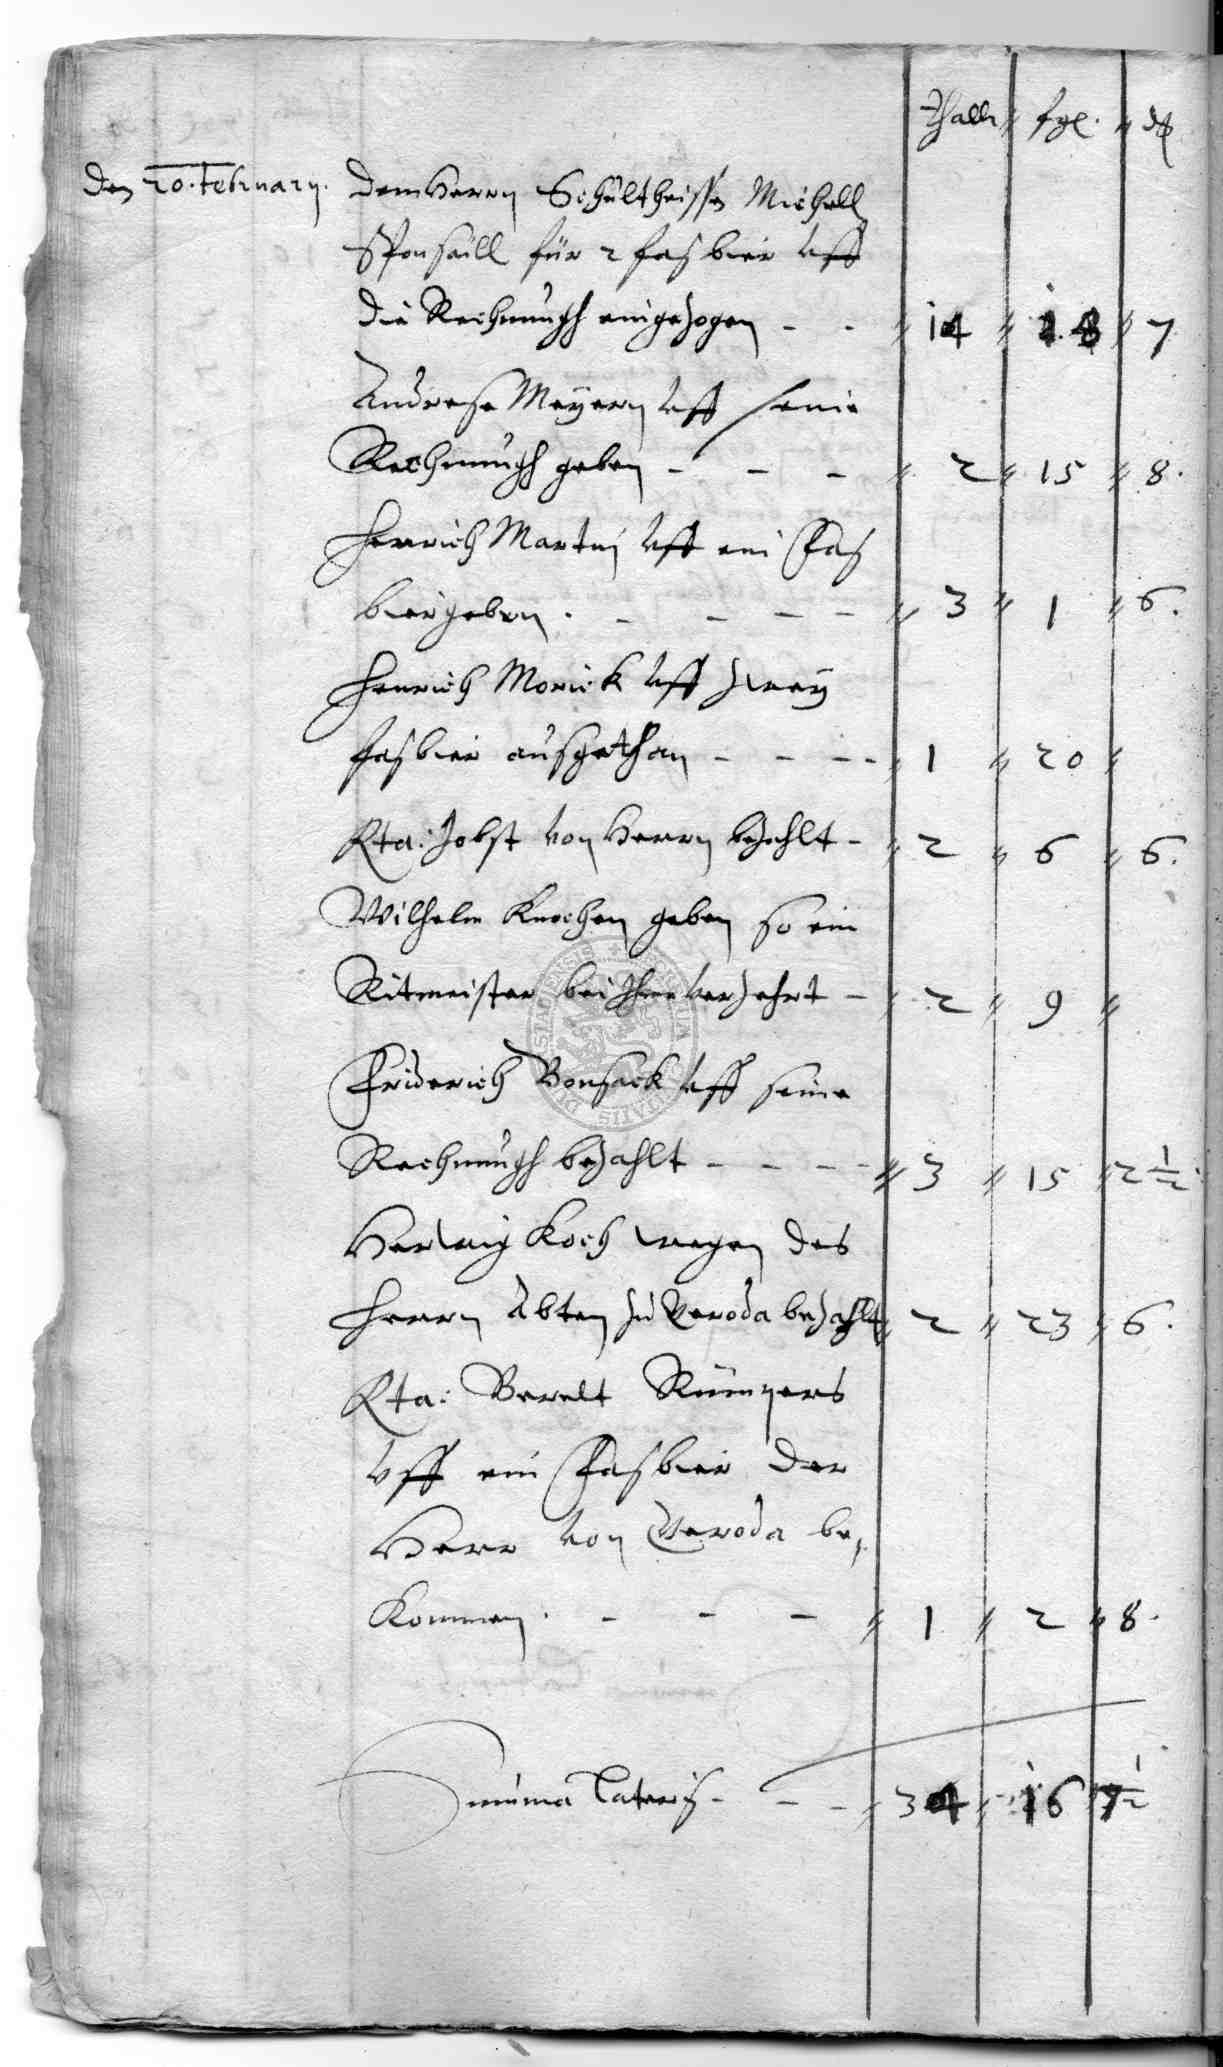 thaller fgl. d
den 20. February. dem Herrn Schultheissen Michell
Sponsaill für 2 fas bier uff
die Rechnungh eingezogen - - 14 18 7
Andrese Meyern uff seine
Rechnungh geben - - - 2 15 8.
Henrich Martin uff ein Fas
bier geben. - - - - 3 1 6.
Henrich Morick uff zwey
fas bier ausgethan - - - - 1 20
Rta: Jobst von Herrn bezahlt - 2 6 6.
Wilhelm Knochen geben so ein
Ritmeister bei Ihme verzehrt - 2 9
Friderich Bonsack uff seine
Rechnungh bezahlt - - - - 3 15 2 1/2.
Herwig Koch wegen des
Herrn Abten zu Geroda bezahlt 2 23 6.
Rta: Berelt
uff ein Fas bier der
Herr von Geroda be,
kommen. - - - 1 2 8.
Summa Lateris - - - 34 16 7 1/2